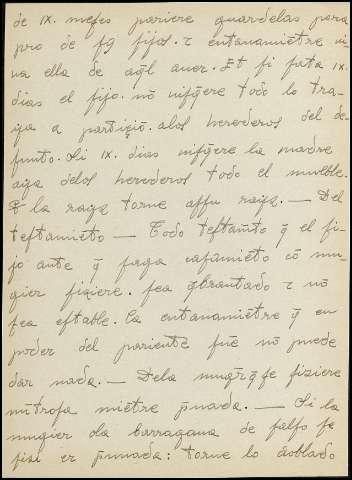 de ix. mefes pariere guardelas para
pro de fꝯ fijos. τ entanamiẽtre ui-
ua ella de aq̃l auer. Et fi fata ix.
dias el fijo. nõ uifq̃ere todo lo tra-
ya a partiziõ. alos herederos del de-
funto. Si ix. dias uifq̃ere la madre
aya delos herederos todo el mueble.
& la rayz torne affu rayz. — Del
teftamiẽto — Todo teftam̃to q̃ el fi-
jo ante q̃ faga cafamiẽto cõ mu-
gier fiziere. fea q̃brantado τ nõ
fea eftable. Ca entanamiẽtre q̃ en
poder del pariente fuẽ nõ puede
dar nada. — Dela mug̃r q̃ fe fiziere
mĩtrofa miẽtre p̃nnada. — Si la
mugier ola barragana de falfo fe
fizi er p̃nnada: torne lo doblado